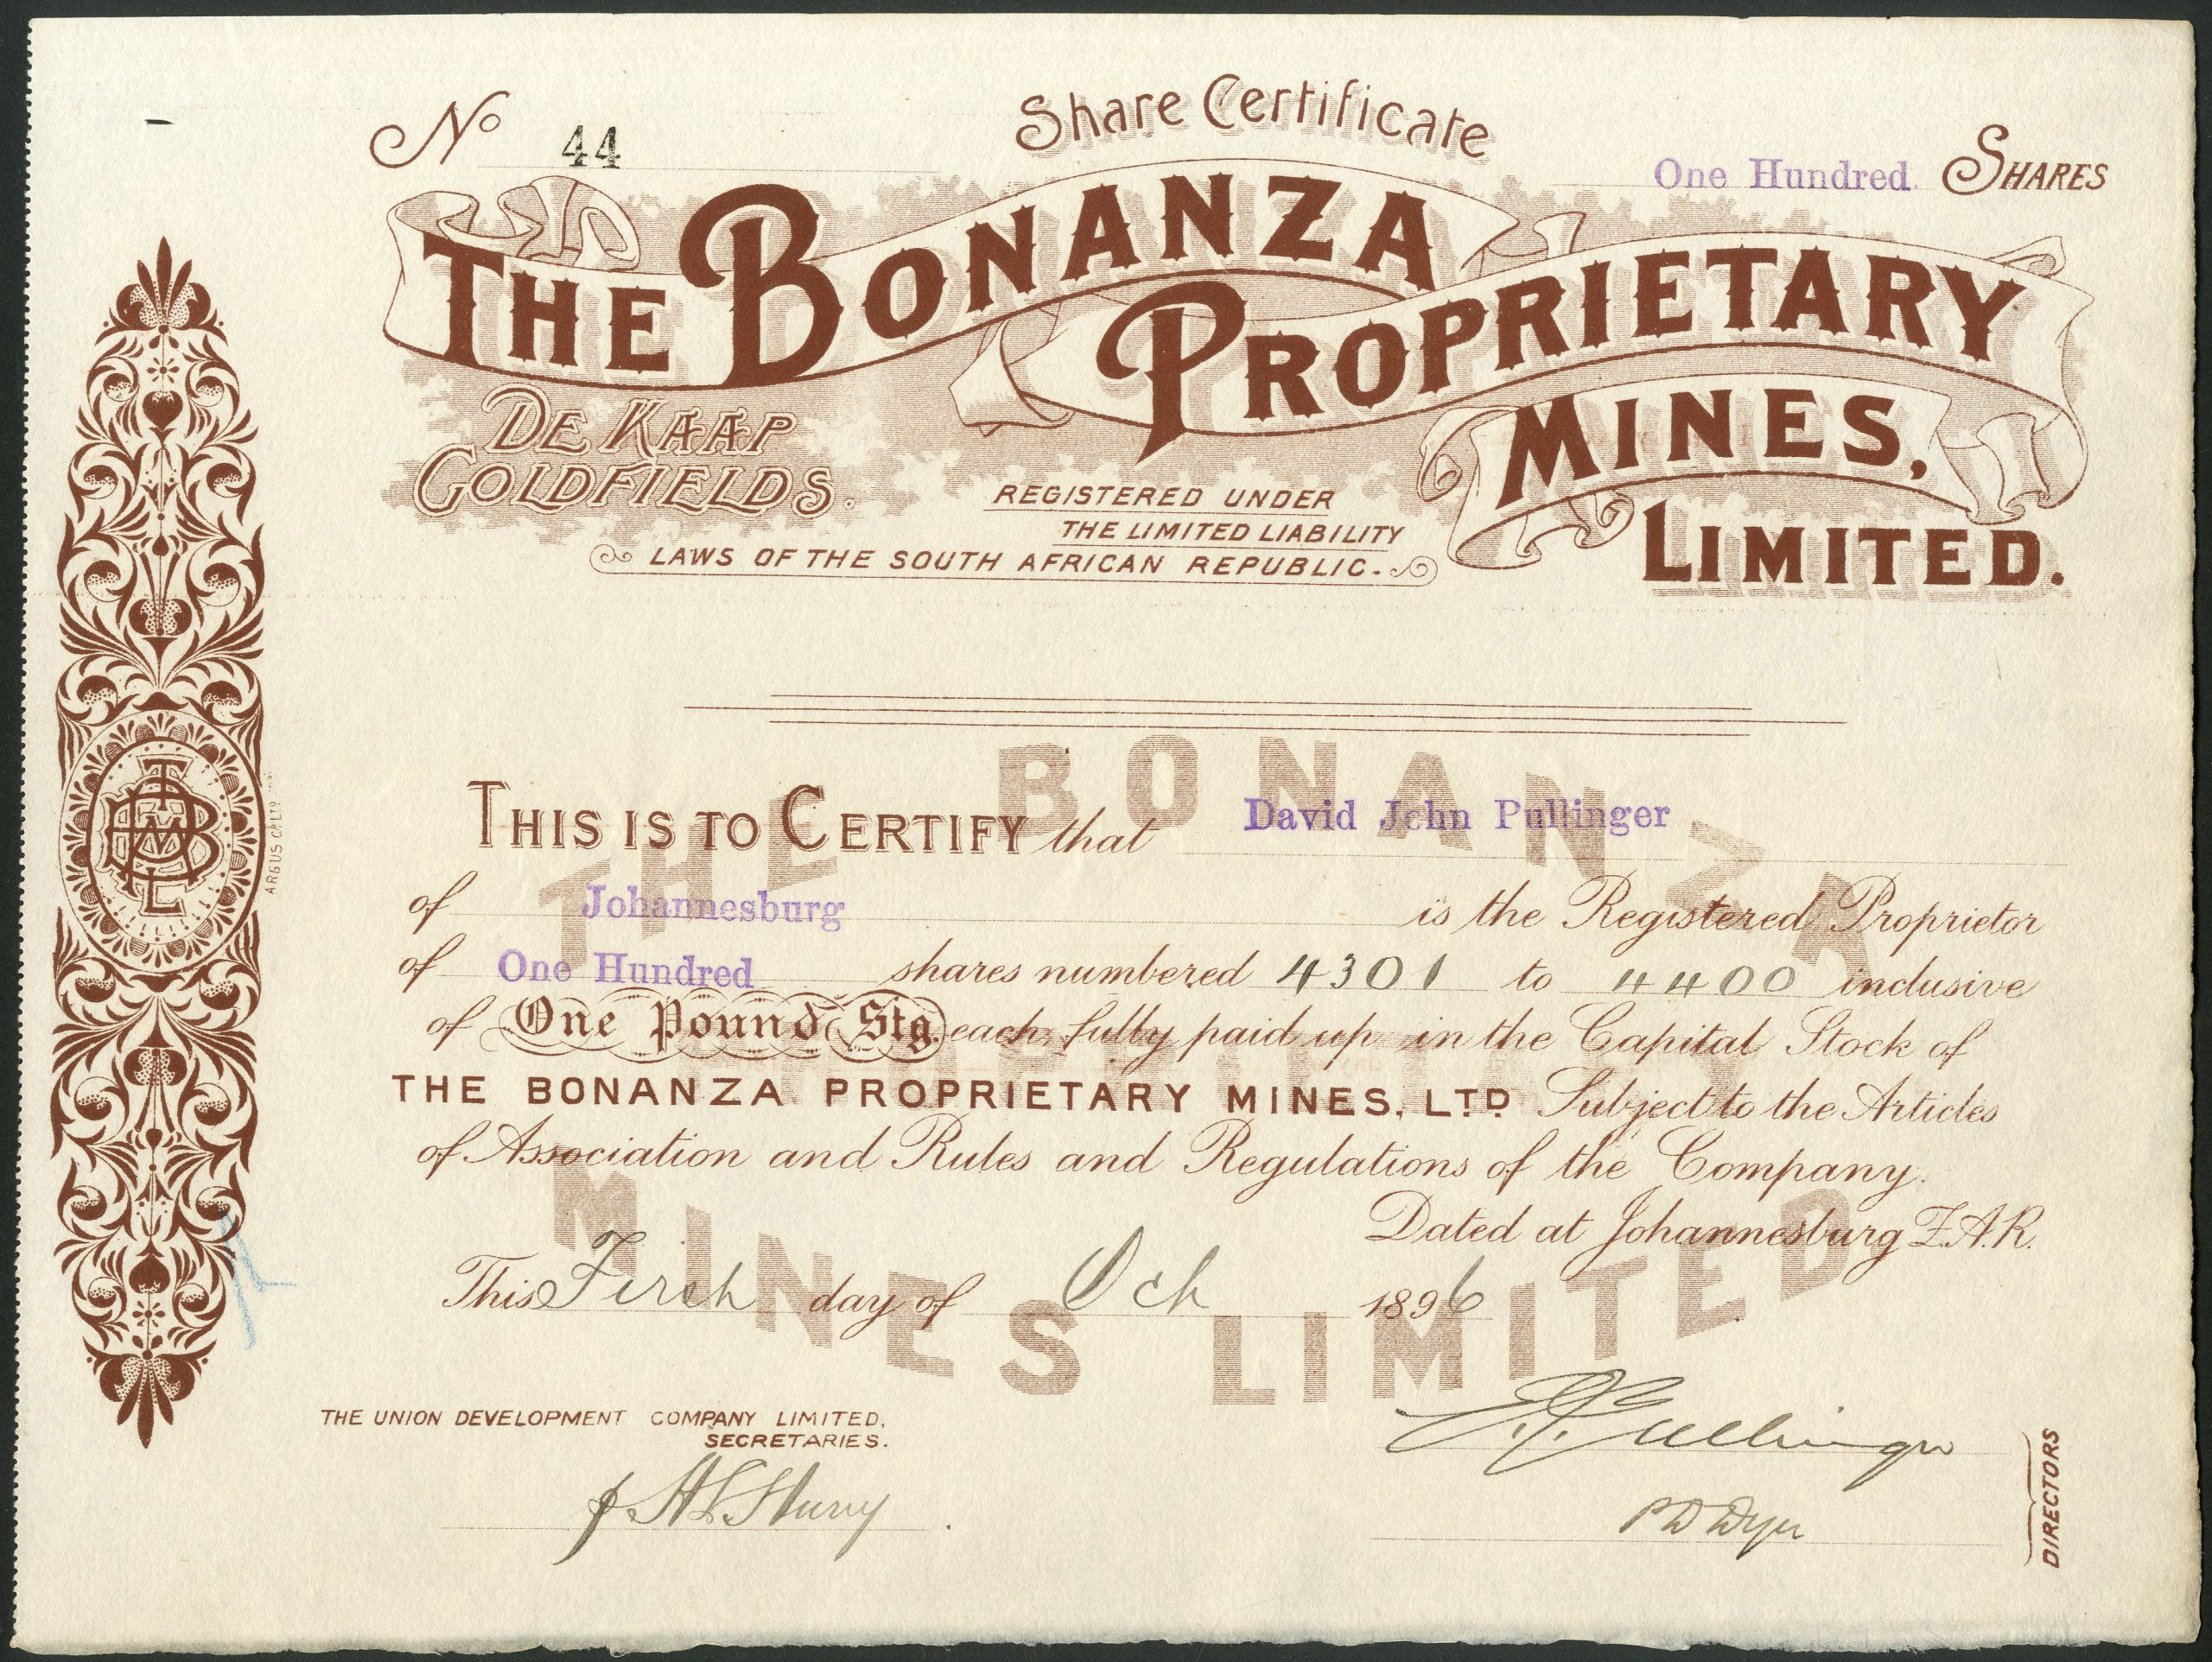 Share Certificate
No 44
One Hundred SHARES
THE BONANZA
PROPRIETARY
MINES,
LIMITED.
DE KAAP
GOLDFIELDS.
REGISTERED UNDER
THE LIMITED LIABILITY
LAWS OF THE SOUTH AFRICAN REPUBLIC.
THIS IS TO CERTIFY that David John Pullinger
of Johannesburg is the Registered Proprietor
of One Hundred shares numbered 4301 to 4400 inclusive
of One Pound Stg. each, fully paid up in the Capital Stock of
THE BONANZA PROPRIETARY MINES, LTD Subject to the Articles
of Association and Rules and Regulations of the Company.
Dated at Johannesburg Z.A.R.
This First day of Oct 1896
THE BONANZA
PROPRIETARY
MINES LIMITED
THE UNION DEVELOPMENT COMPANY LIMITED,
SECRETARIES.
DIRECTORS
ARGUS Co LTD